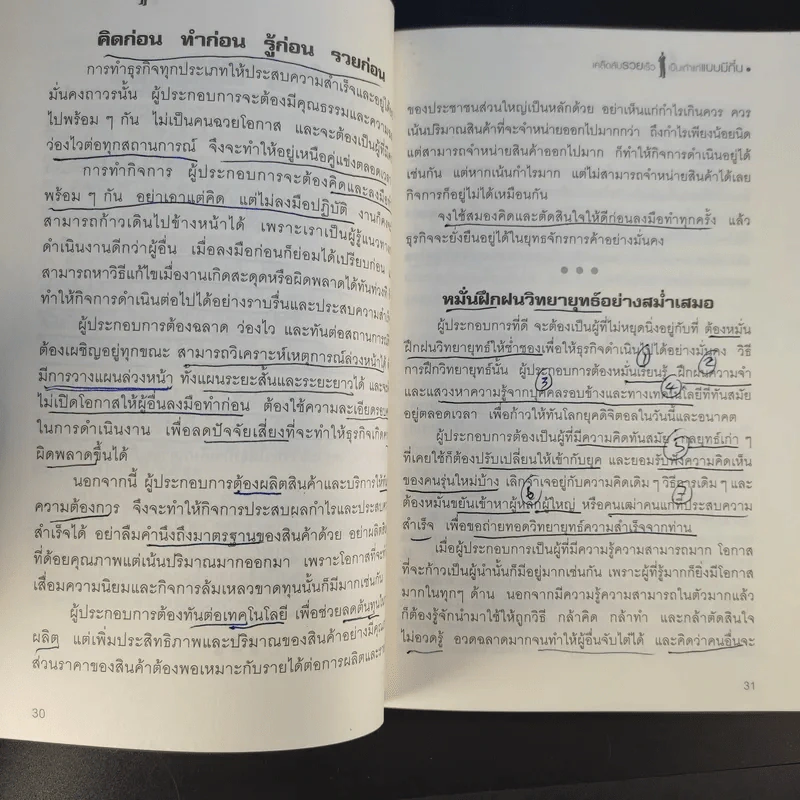 คิดก่อน ทำก่อน รู้ก่อน รวยก่อน
การทำธุรกิจทุกประเภทให้ประสบความสำเร็จและอยู่ได้
มั่นคงถาวรนั้น ผู้ประกอบการจะต้องมีคุณธรรมและความ
ไปพร้อม ๆ กัน ไม่เป็นคนฉวยโอกาส และจะต้องเป็นผู้ที่มี
ว่องไวต่อทุกสถานการณ์ จึงจะทำให้อยู่เหนือคู่แข่งตลอดเวลา
การทำกิจการ ผู้ประกอบการจะต้องคิดและลงมือ
พร้อม ๆ กัน อย่าเอาแต่คิด แต่ไม่ลงมือปฏิบัติ งานก็
สามารถก้าวเดินไปข้างหน้าได้ เพราะเราเป็นผู้รู้แนวทาง
ดำเนินงานดีกว่าผู้อื่น เมื่อลงมือก่อนก็ย่อมได้เปรียบก่อน
สามารถหาวิธีแก้ไขเมื่องานเกิดสะดุดหรือผิดพลาดได้ทันท่วงที
ทำให้กิจการดำเนินต่อไปได้อย่างราบรื่นและประสบความสำเร็จ
ผู้ประกอบการต้องฉลาด ว่องไว และทันต่อสถานการณ์
ต้องเผชิญอยู่ทุกขณะ สามารถวิเคราะห์เหตุการณ์ล่วงหน้าได้
มีการวางแผนล่วงหน้า ทั้งแผนระยะสั้นและระยะยาวได้ และ
ไม่เปิดโอกาสให้ผู้อื่นลงมือทำก่อน ต้องใช้ความละเอียดรอบคอบ
ในการดำเนินงาน เพื่อลดปัจจัยเสี่ยงที่จะทำให้ธุรกิจเกิด
ผิดพลาดขึ้นได้
นอกจากนี้ ผู้ประกอบการต้องผลิตสินค้าและบริการให้
ความต้องการ จึงจะทำให้กิจการประสบผลกำไรและประสบ
สำเร็จได้ อย่าลืมคำนึงถึงมาตรฐานของสินค้าด้วย อย่าผลิต
ที่ด้อยคุณภาพแต่เน้นปริมาณมากออกมา เพราะโอกาสที่จะ
เสื่อมความนิยมและกิจการล้มเหลวขาดทุนนั้นก็มีมากเช่นกัน
ผู้ประกอบการต้องทันต่อเทคโนโลยี เพื่อช่วยลดต้นทุน
ผลิต แต่เพิ่มประสิทธิภาพและปริมาณของสินค้าอย่างมี
ส่วนราคาของสินค้าต้องพอเหมาะกับรายได้ต่อการผลิตและ
30
เคล็ดลับรวยเร็ว เป็นเถ้าแก่แบบมีกึ๋น •
ของประชาชนส่วนใหญ่เป็นหลักด้วย อย่าเห็นแก่กำไรเกินควร ควร
เน้นปริมาณสินค้าที่จะจำหน่ายออกไปมากกว่า ถึงกำไรเพียงน้อยนิด
แต่สามารถจำหน่ายสินค้าออกไปมาก ก็ทำให้กิจการดำเนินอยู่ได้
เช่นกัน แต่หากเน้นกำไรมาก แต่ไม่สามารถจำหน่ายสินค้าได้เลย
กิจการก็อยู่ไม่ได้เหมือนกัน
จงใช้สมองคิดและตัดสินใจให้ดีก่อนลงมือทำทุกครั้ง แล้ว
ธุรกิจจะยั่งยืนอยู่ได้ในยุทธจักรการค้าอย่างมั่นคง
• • •
หมั่นฝึกฝนวิทยายุทธ์อย่างสม่ำเสมอ
ผู้ประกอบการที่ดี จะต้องเป็นผู้ที่ไม่หยุดนิ่งอยู่กับที่ ต้องหมั่น
ฝึกฝนวิทยายุทธ์ให้ช่ำชองเพื่อให้ธุรกิจดำเนินไปได้อย่างมั่นคง วิธี
การฝึกวิทยายุทธ์นั้น ผู้ประกอบการต้องหมั่นเรียนรู้ ฝึกฝนความจำ
และแสวงหาความรู้จากบุคคลรอบข้างและทางเทคโนโลยีที่ทันสมัย
อยู่ตลอดเวลา เพื่อก้าวให้ทันโลกยุคดิจิตอลในวันนี้และอนาคต
ผู้ประกอบการต้องเป็นผู้ที่มีความคิดทันสมัย กลยุทธ์เก่า ๆ
ที่เคยใช้ก็ต้องปรับเปลี่ยนให้เข้ากับยุค และยอมรับฟังความคิดเห็น
ของคนรุ่นใหม่บ้าง เลิกจำเจอยู่กับความคิดเดิม ๆ วิธีการเดิม ๆ และ
ต้องหมั่นขยันเข้าหาผู้หลักผู้ใหญ่ หรือคนเฒ่าคนแก่ที่ประสบความ
สำเร็จ เพื่อขอถ่ายทอดวิทยายุทธ์ความสำเร็จจากท่าน
เมื่อผู้ประกอบการเป็นผู้ที่มีความรู้ความสามารถมาก โอกาส
ที่จะก้าวเป็นผู้นำนั้นก็มีอยู่มากเช่นกัน เพราะผู้ที่รู้มากก็ยิ่งมีโอกาส
มากในทุกๆ ด้าน นอกจากมีความรู้ความสามารถในตัวมากแล้ว
ก็ต้องรู้จักนำมาใช้ให้ถูกวิธี กล้าคิด กล้าทำ และกล้าตัดสินใจ
ไม่อวดรู้ อวดฉลาดมากจนทำให้ผู้อื่นจับไต๋ได้ และคิดว่าคนอื่นจะ
31
① ② ③ ④ ⑤ ⑥ ⑦